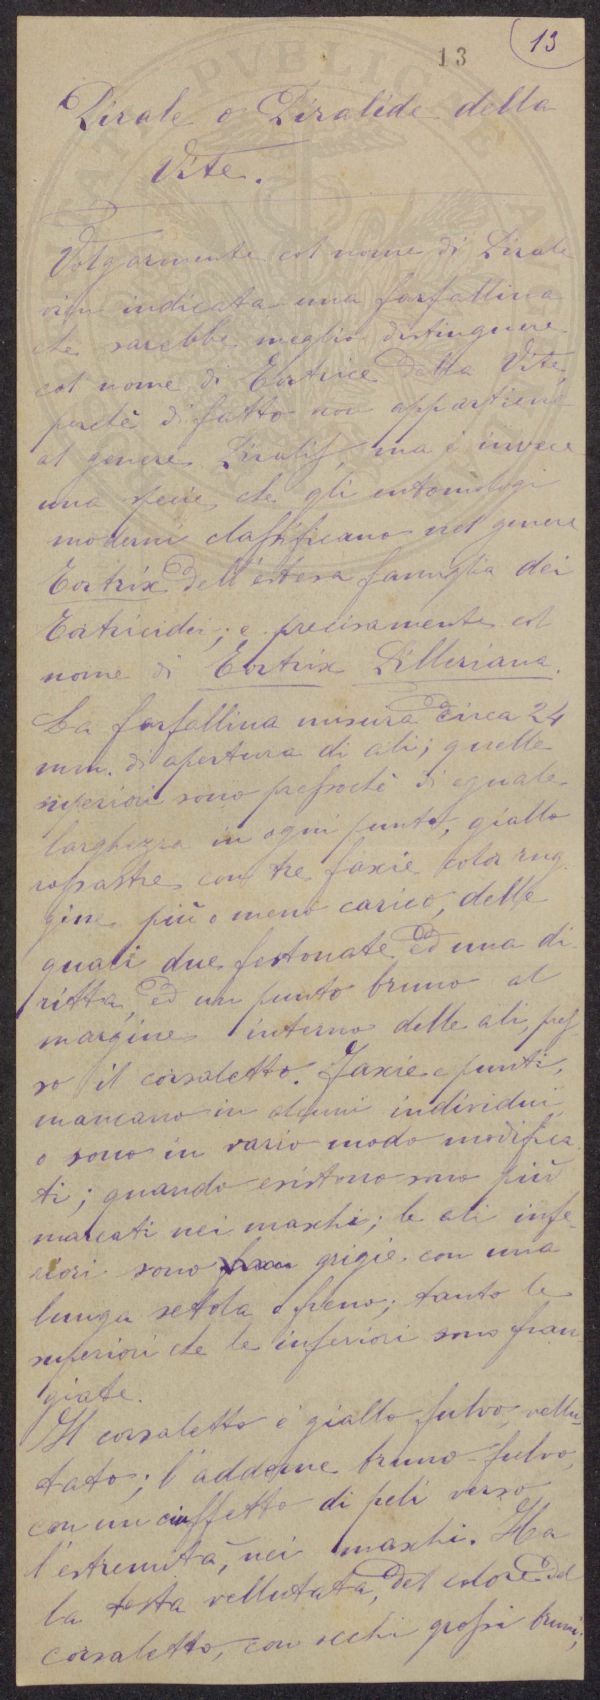 13
13
Pirale o Piralide della
Vite.
Volgarmente col nome di Pirale
vien indicata una farfallina
che sarebbe meglio distinguere
col nome di Tortrice della Vite,
perchè di fatto non appartiene
al genere Piralis, ma è invece
una specie che gli entomologi
moderni classificano nel genere
Tortrix dell'estesa famiglia dei
Tortricidei; e precisamente col
nome di Tortrix Pilleriana.
La farfallina misura circa 24
mm. di apertura di ali; quelle
superiori sono pressochè di eguale
larghezza in ogni punto, giallo
rossastre con tre fascie color rug
gine più o meno carico, delle
quali due festonate ed una di-
ritta, ed un punto bruno al
margine interno delle ali, pres
so il corsaletto. Fascie e punti,
mancano in alcuni individui,
o sono in vario modo modifica
ti; quando esistono sono più
marcati nei maschi; le ali infe-
riori sono grigie con una
lunga setola o freno; tanto le
superiori che le inferiori sono fran
giate.
Il corsaletto è giallo fulvo, vellu-
tato; l'addome bruno-fulvo,
con un ciuffetto di peli verso
l'estremità, nei maschi. Ha
la testa vellutata, del colore del
corsaletto, con occhi grossi bruni,